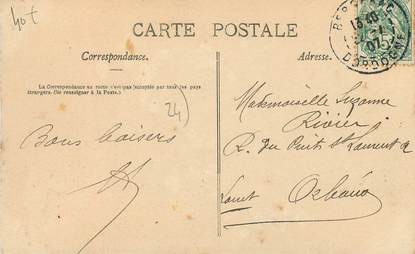 40t
CARTE POSTALE
Correspondance.
Adresse.
La Correspondance au recto n'est pas acceptée par tous les pays
étrangers. (Se renseigner à la Poste.)
24)
Bons baisers
Mademoiselle Suzanne
Rivier
R. du Puits St Laurent
Loiret
DORDOGNE